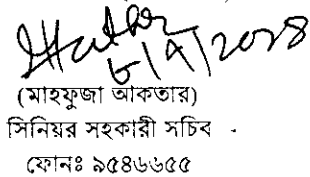 ৮/৭/২০২৪
(মাহফুজা আকতার)
সিনিয়র সহকারী সচিব
ফোনঃ ৯৫৪৬৬৫৫